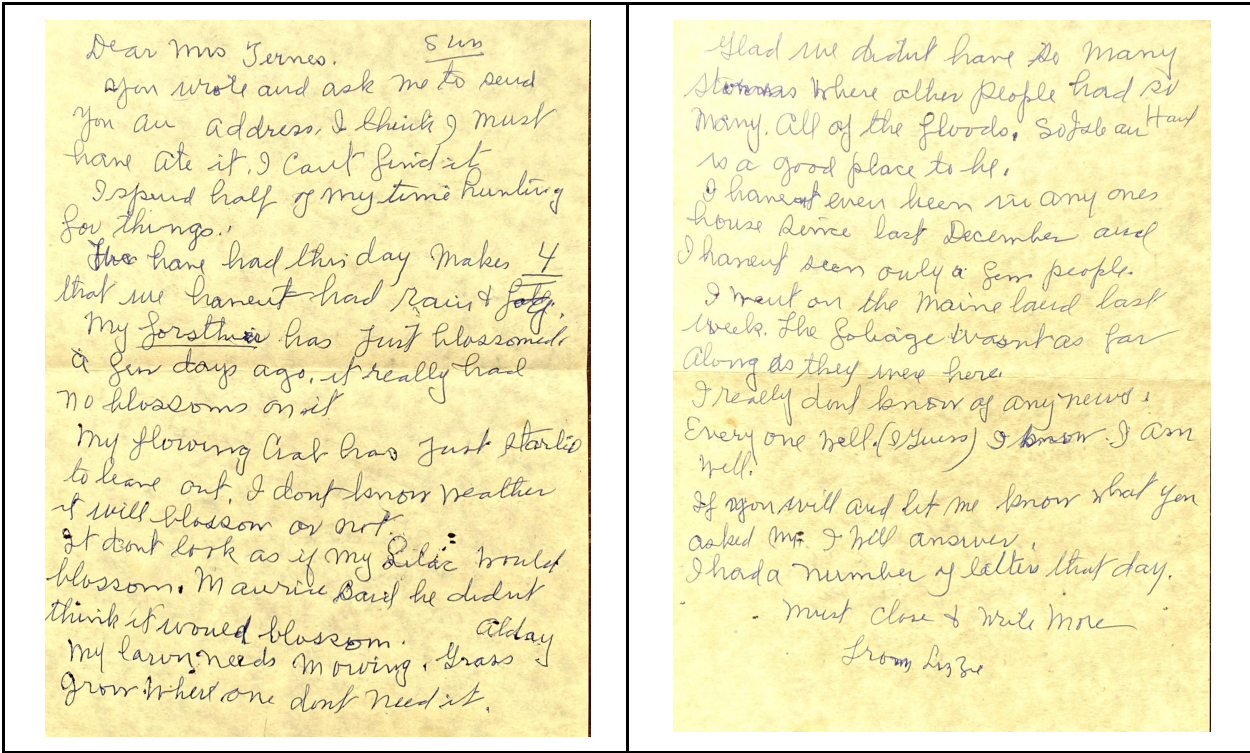 Sun
Dear Mrs Ternes.
You wrote and ask me to send
you an address, I think I must
have ate it, I cant find it
I spend half of my time hunting
for things.
have had this day makes 4
that we havent had rain & fog.
My forsthia has Just blossomed.
a few days ago, it really had
no blossoms on it
My flowing Crab has Just started
to leave out. I dont know weather
it will blossom or not.
It dont look as if my Lilac would
blossom. Maurice Said he didnt
think it would blossom.
My lawn needs mowing. Grass
grow where one dont need it.
Glad we didnt have so many
storms where other people had so
many. All of the floods. So Isle au Haut
is a good place to be.
I havent even been in any ones
house since last December and
I havent seen only a few people.
I went on the Maine land last
week. The foliage wasnt as far
along as they were here.
I really dont know of any news.
Every one well. (I Guess) I know I am
well.
If you will and let me know what you
asked me I will answer.
I had a number of letters that day.
Must Close & Write More
From Lizzie